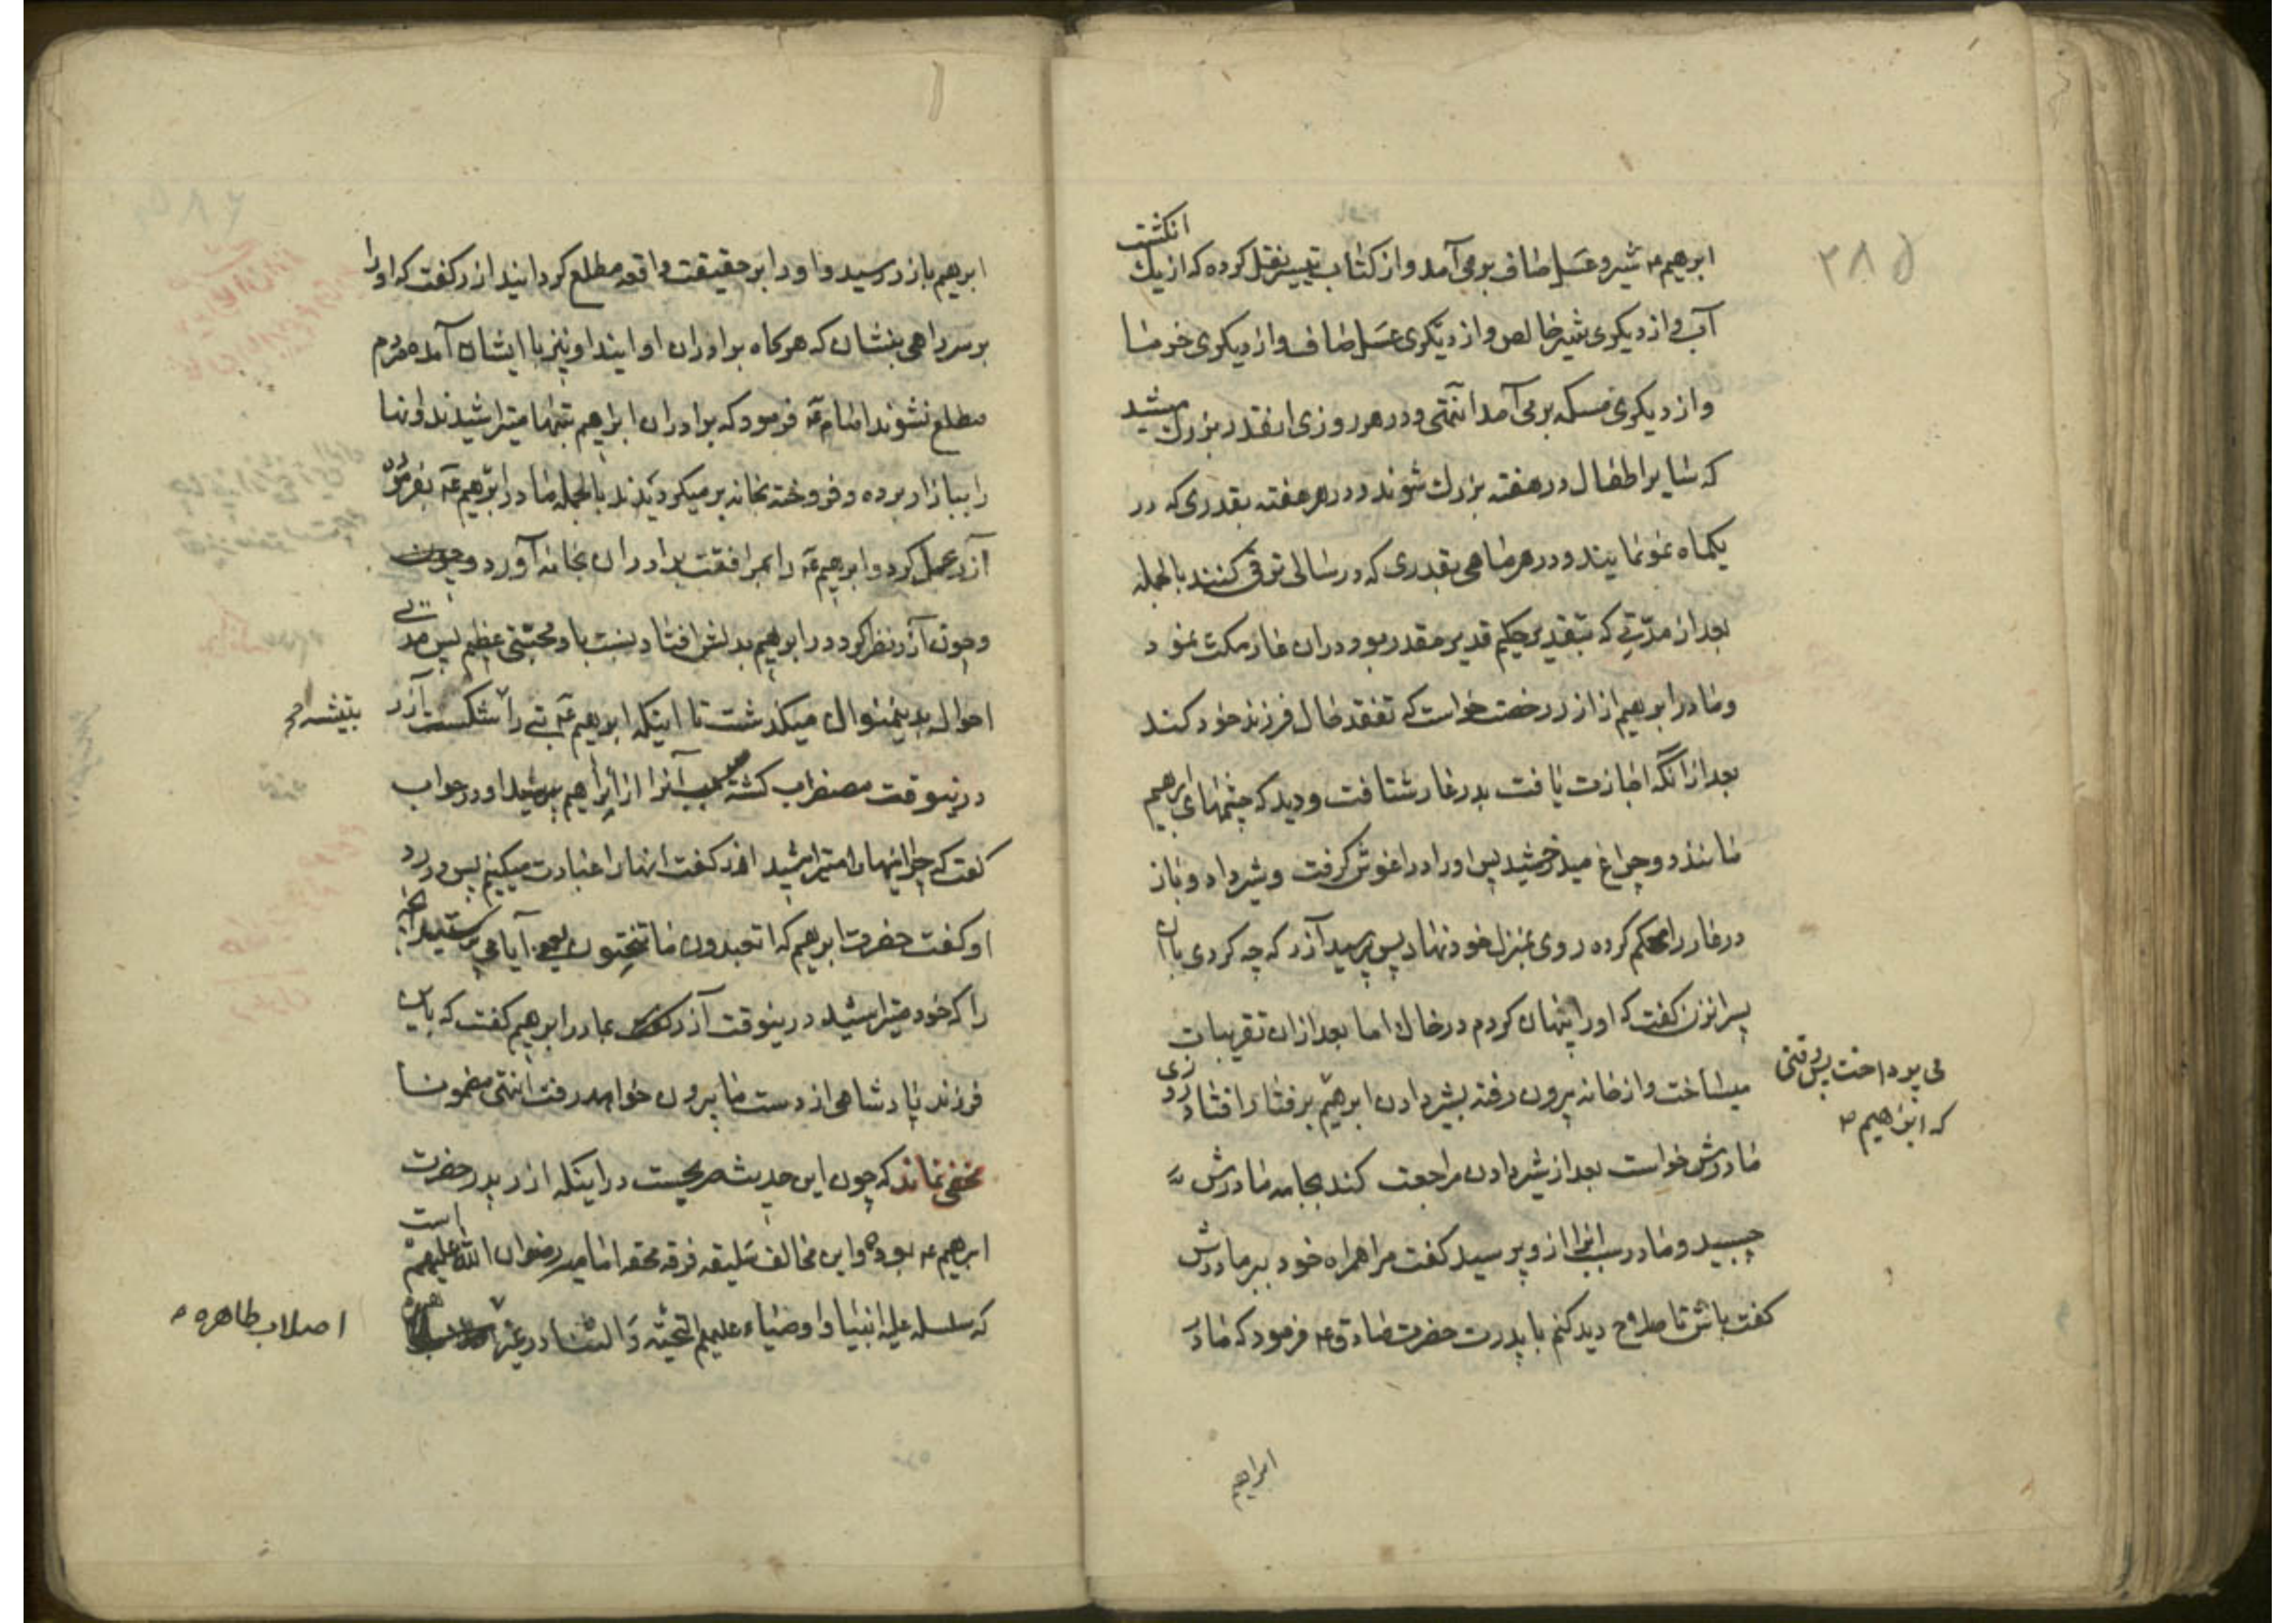 ۲۸۵
انکشت
ابرهیم ع شیر و عسل صاف بر می آمد و از کتاب تیسیر نقل کرده که از یك
آب و از دیکری شیر خالص و از دیکری عسل صاف و از دیکری خرما
و از دیکری مسکه بر می آمد انتهی و در هر روزی انقدر بزرك میشد
که سایر اطفال در هفته بزرك شوند و در هر هفته بقدری که در
یکماه نمو نمایند و در هر ماهی بقدری که در سالی ترقی کنند بالجمله
بعد از مدّتی که بتقدیر حکیم قدیر مقدر بود در ان غار مکث نمود
و مادر ابرهیم از ازر رخصت خواست که تفقد حال فرزند خود کند
بعد از انکه اجازت یافت بدر غار شتافت و دید که چشمهای ابرهیم
مانند دو چراغ میدرخشید پس او را در اغوش کرفت و شیر داد و باز
در غار را محکم کرده روی بمنزل خود نهاد پس پرسید آزر که چه کردی با ان
پسر انزن کفت که او را پنهان کردم در خاك اما بعد از ان تقریبات
میساخت و از خانه بیرون رفته بشیر دادن ابرهیم بر فتار افتاد روزی
می پرداخت پس وقتی
که ابرهیم ع
مادرش خواست بعد از شیر دادن مراجعت کند بجامه مادرش
چسبید و مادر سبب انرا از و پرسید کفت مرا همراه خود ببر مادرش
کفت باش تا صلاح دید کنم با پدرت حضرت صادق ع فرمود که مادر
ابراهیم
ابرهیم بازر رسید و او را بر حقیقت واقعه مطلع کردانید ازر کفت که او را
بر سر راهی بنشان که هرکاه برادران او ایند او نیز با ایشان آمده مردم
مطلع نشوند امام ع فرمود که برادران ابرهیم بتها میتراشیدند و انها
را ببازار برده و فروخته بخانه بر میکردیدند بالجمله مادر ابرهیم ع بفرموده
آزر عمل کرد و ابرهیم ع را بمرافقت برادران بخانه آورد
و چون آزر نظر کرد در ابرهیم بدلش افتاد نسبت باو محبّتی عظیم پس مدتی
احوال بدینمنوال میکذشت تا اینکه ابرهیم ع بتی را شکست آزر
بتیشه
درینوقت مضطرب کشته سبب آنرا از ابراهیم پرسید او در جواب
کفت که چرا اینها را میتراشید ازر کفت انها را عبادت میکنیم پس در رد
او کفت حضرت ابرهیم که اتعبدون ما تنحتون یعنی آیا می پرستید انچه
را که خود میتراشید درینوقت آزر بمادر ابرهیم کفت که باین
فرزند پادشاهی از دست ما بیرون خواهد رفت انتهی مضمونا
مخفی نماند که چون این حدیث صریحیست در اینکه ازر پدر حضرت
ابرهیم ع بوده است و این مخالف سلیقه فرقه محقه امامیه رضوان الله علیهم
که سلسله علیه انبیا و اوصیاء علیهم التحیّه و الثنا در غیر
اصلاب طاهره